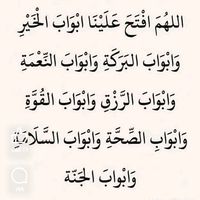 اللهُمَ افْتَحَ عَلَيْنَا ابْوَابَ الْخَيْرِ
وَابْوَابَ البَرَكَةِ وَابْوَابَ النِّعْمَةِ
وَابْوَابَ الرِّزْقِ وَابْوَابَ القُوَّةِ
وَابْوَابِ الصِّحَّةِ وَابْوَابَ السَّلَامَةِ
وَابْوابَ الجَنّة